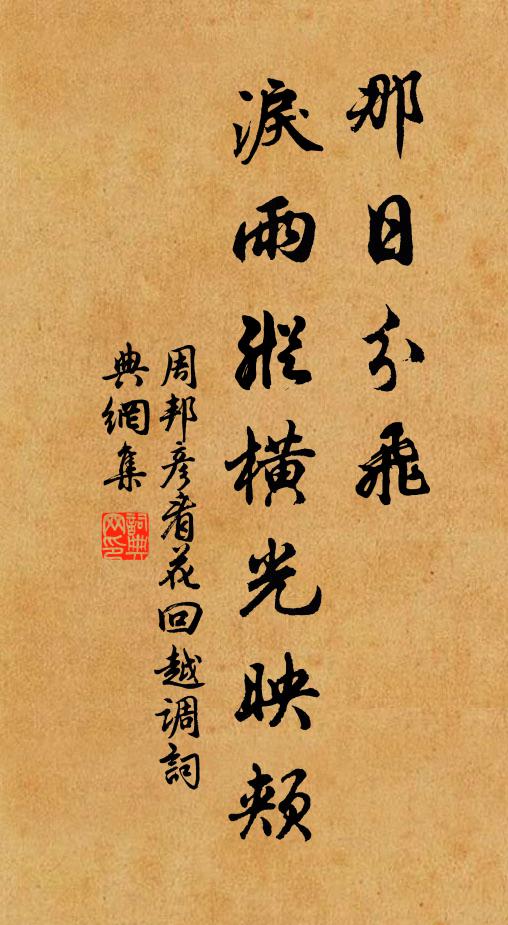 那日分飛
淚雨縱橫光映頰
周邦彥看花回越調詞
典網集
詞典網印